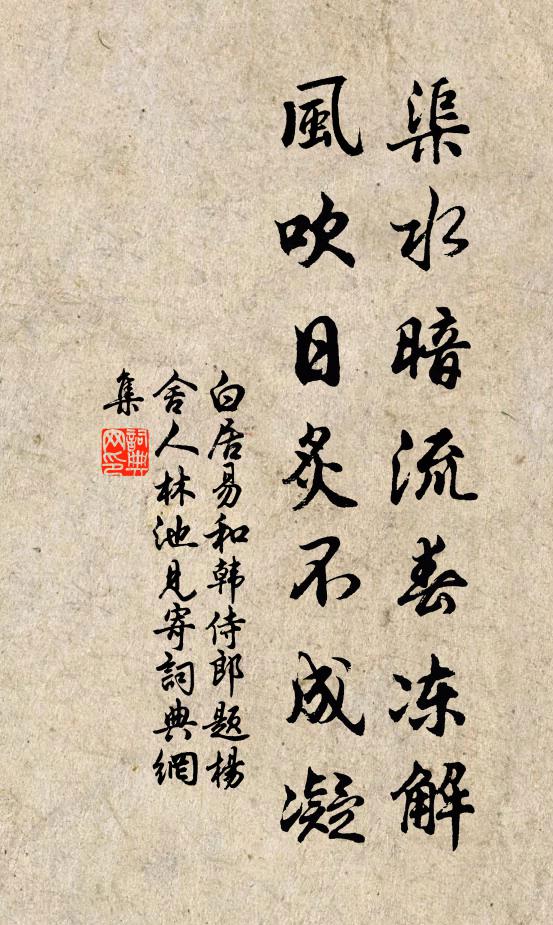 渠水暗流春冻解
風吹日炙不成凝
白居易和韩侍郎题楊
舍人林池見寄詞典網
集
詞典
网印